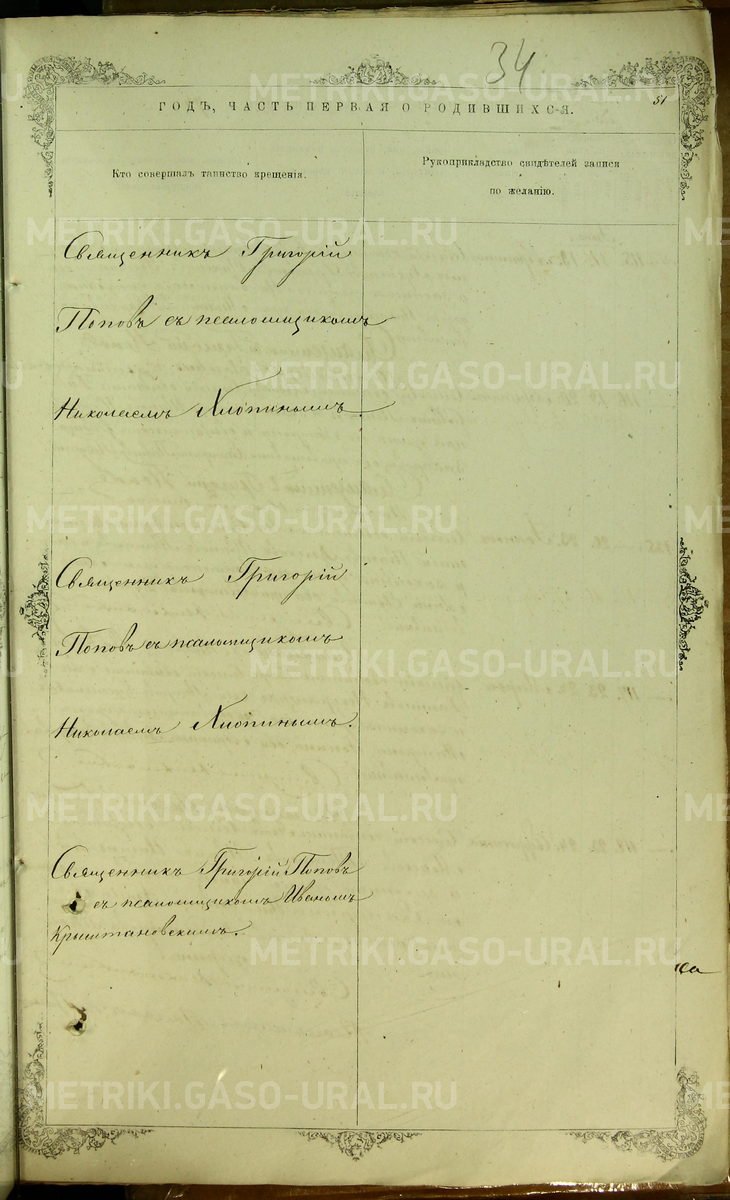 34
51
ГОДЪ, ЧАСТЬ ПЕРВАЯ О РОДИВШИХСЯ.
Кто совершалъ таинство крещенія.
Рукоприкладство свидѣтелей записи
по желанію.
Священникъ Григорій
Поповъ съ псаломщикомъ
Николаемъ Хлопинымъ.
Священникъ Григорій
Поповъ съ псаломщикомъ
Николаемъ Хлопинымъ.
Священникъ Григорій Поповъ
съ псаломщикомъ Иваномъ
Крыштановскимъ.
METRIKI.GASO-URAL.RU